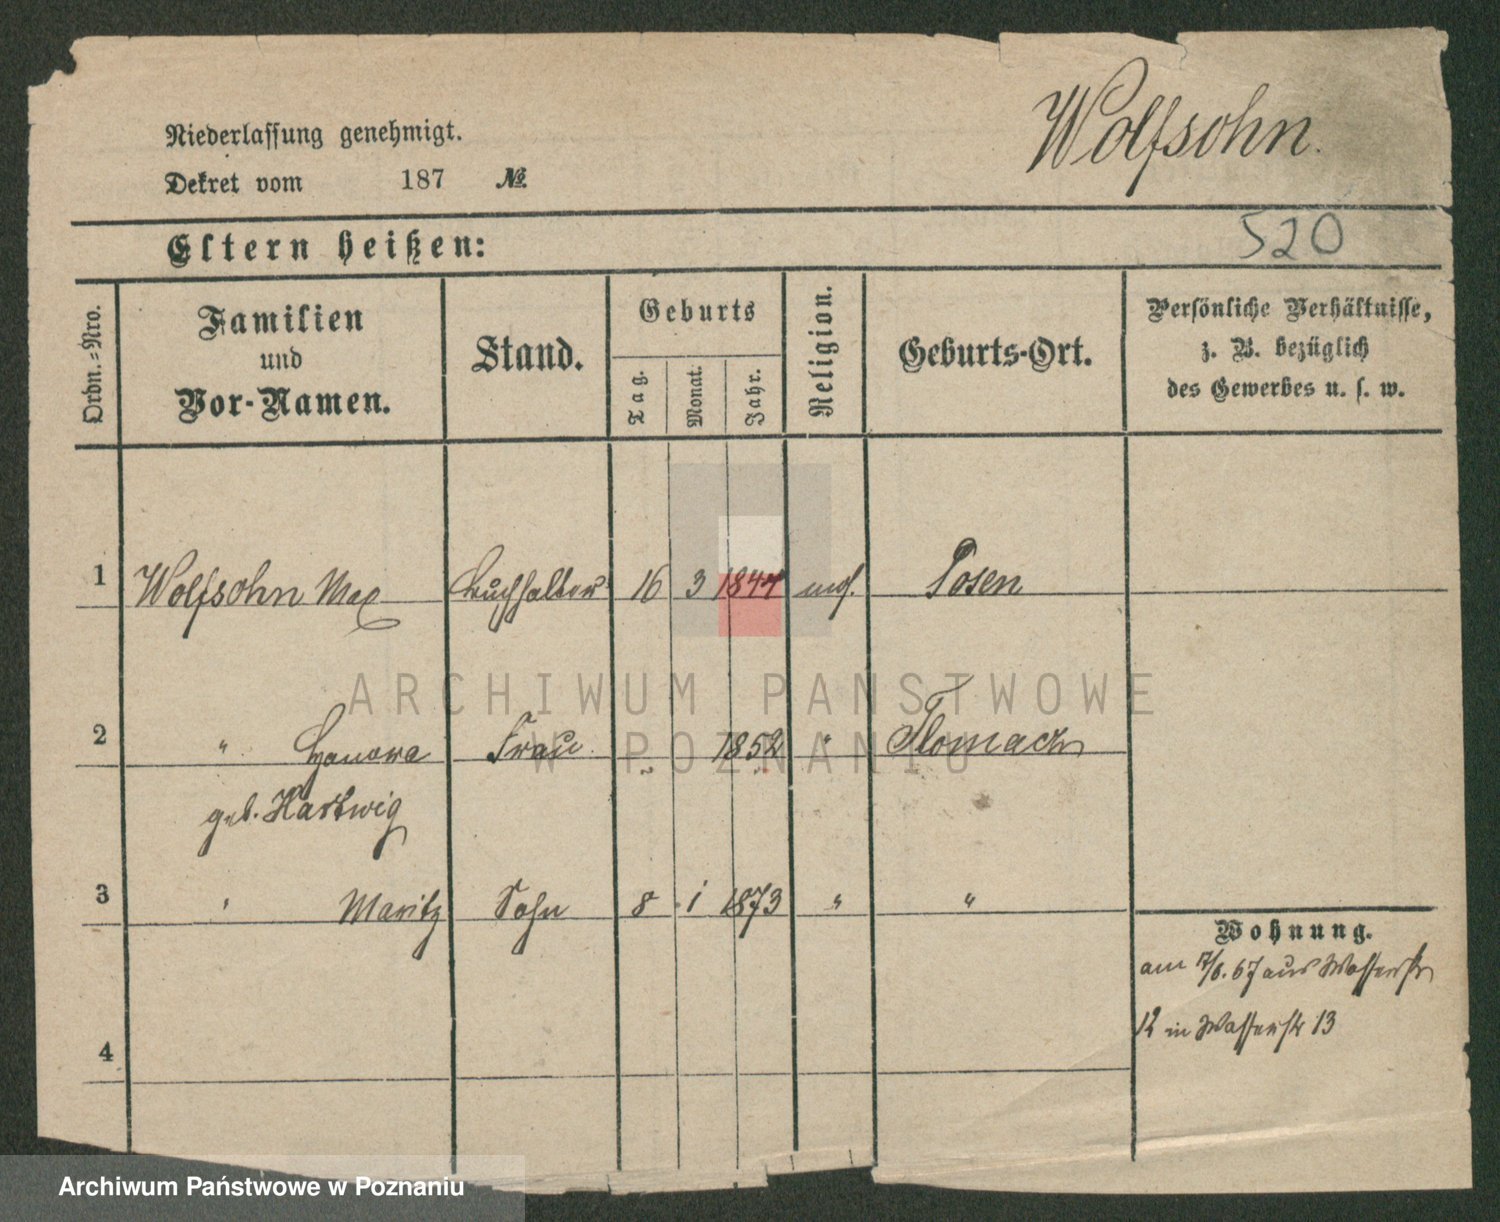 Wolfsohn.
Niederlassung genehmigt.
Dekret vom 187 №.
520
Eltern heißen:
Ordn.-Nro.
Familien
und
Vor-Namen.
Stand.
Geburts
Tag.
Monat.
Jahr.
Religion.
Geburts-Ort.
Persönliche Verhältnisse,
z. B. bezüglich
des Gewerbes u. s. w.
1 Wolfsohn Max Buchhalter 16 3 1847 mos. Posen
2 " Frau 1852 "
geb. Hartwig
3 " Moritz Sohn 8 1 1873 " "
Wohnung.
am aus Wasserstr
12 in Wasserstr 13
4
ARCHIWUM PAŃSTWOWE
W POZNANIU
Archiwum Państwowe w Poznaniu